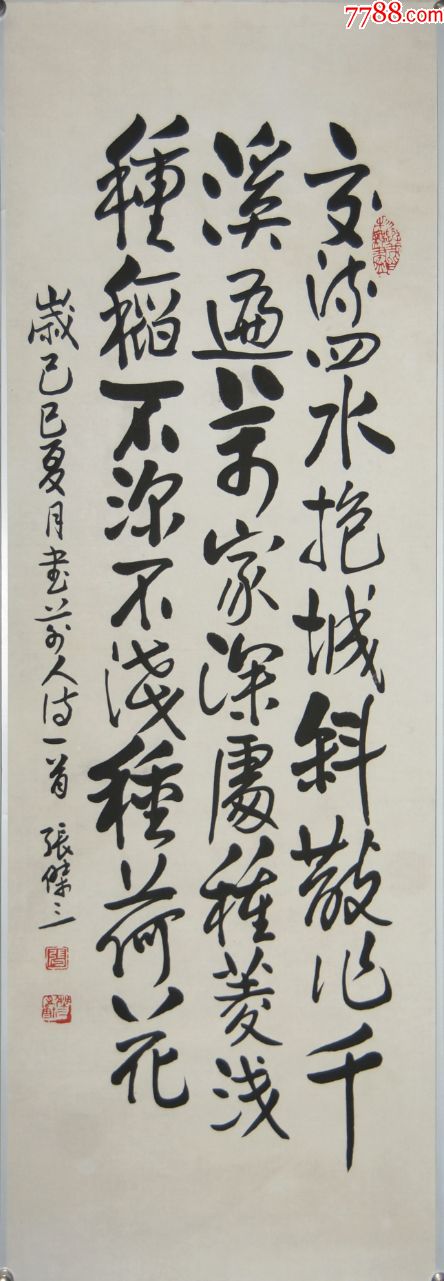 7788.com
交流四水抱城斜散作千
溪遍万家深處種菱浅
種稻不深不浅種荷花
歲己巳夏月书前人诗一首 張傑三